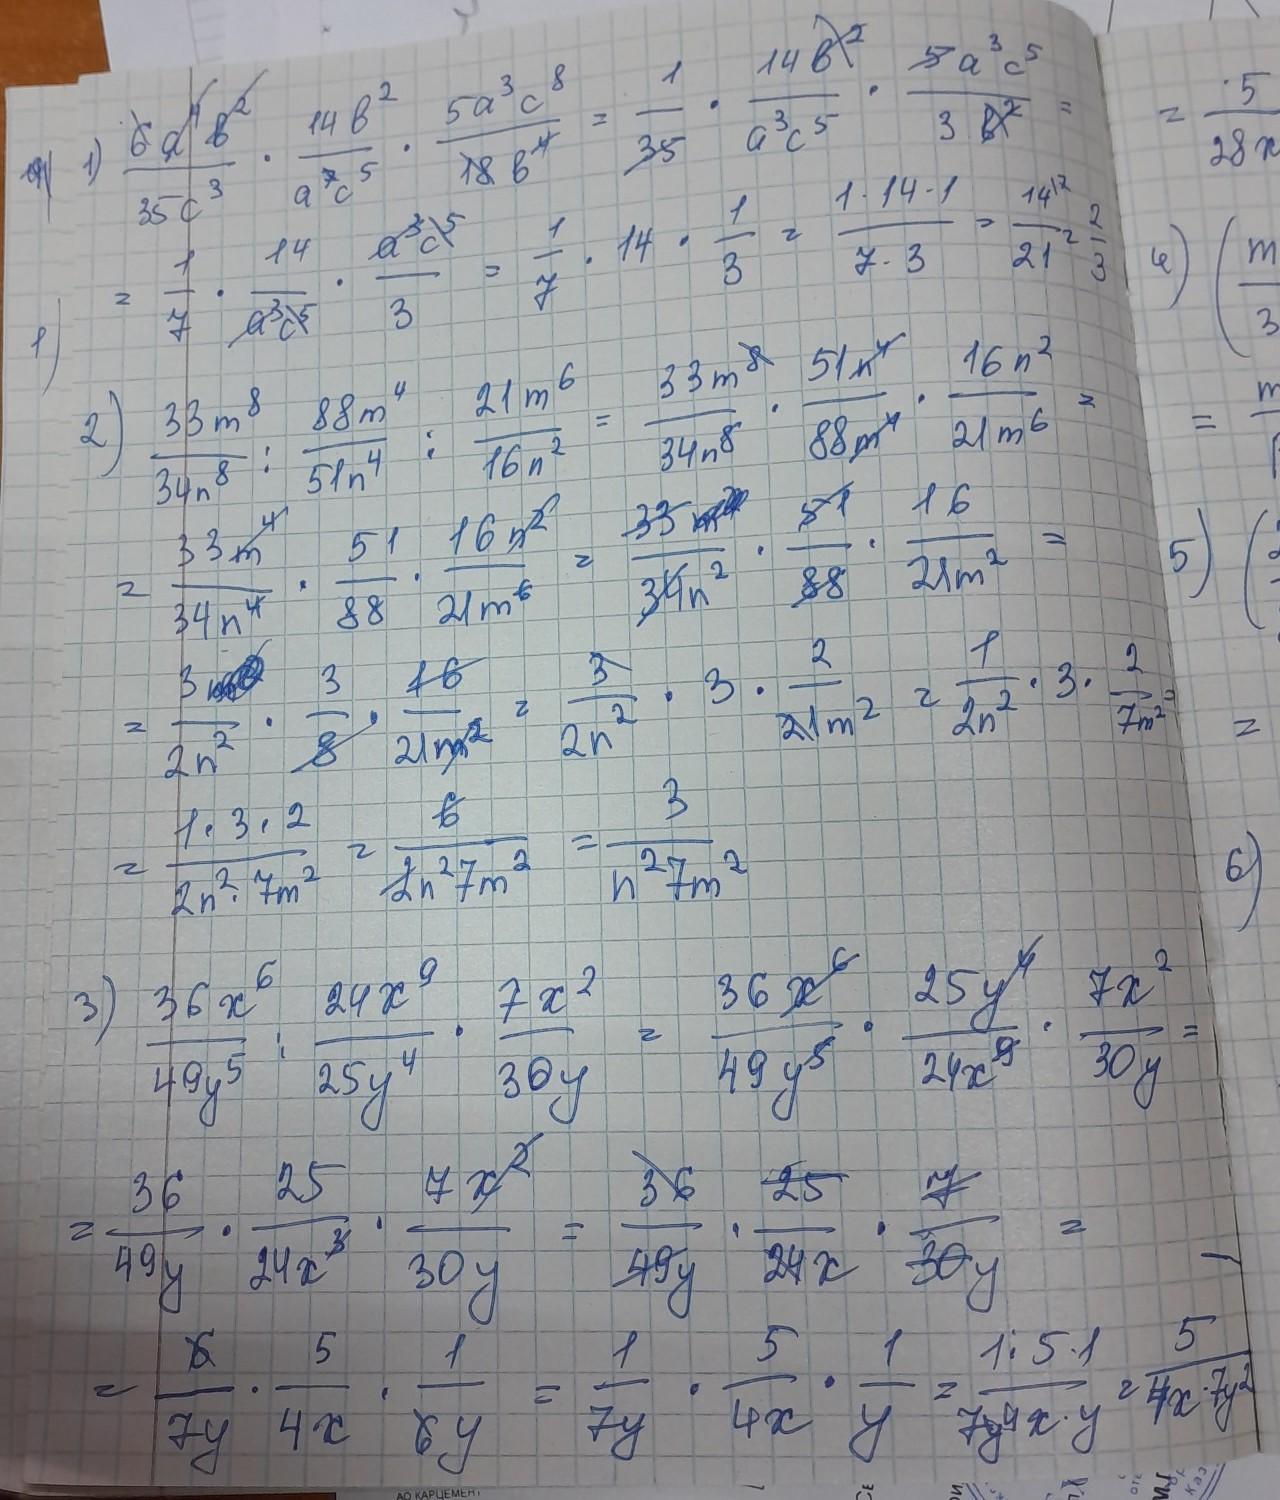 1) 6a⁴b²/35c³ · 14b²/a⁷c⁵ · 5a³c⁸/18b⁴ = 1/35 · 14b²/a³c⁵ · 5a³c⁵/3b² =
= 1/7 · 14/a³c⁵ · a³c⁵/3 = 1/7 · 14 · 1/3 = 1·14·1/7·3 = 14/21 = 2/3
1)
2) 33m⁸/34n⁸ : 88m⁴/51n⁴ : 21m⁶/16n² = 33m⁸/34n⁸ · 51n⁴/88m⁴ · 16n²/21m⁶ =
= 33m⁴/34n⁴ · 51/88 · 16n²/21m⁶ = 33/34n² · 51/88 · 16/21m² =
= 3/2n² · 3/8 · 16/21m² = 3/2n² · 3 · 2/21m² = 1/2n² · 3 · 2/7m² =
= 1·3·2/2n²·7m² = 6/2n²7m² = 3/n²7m²
3) 36x⁶/49y⁵ : 24x⁹/25y⁴ · 7x²/30y = 36x⁶/49y⁵ · 25y⁴/24x⁹ · 7x²/30y =
= 36/49y · 25/24x³ · 7x²/30y = 36/49y · 25/24x · 7/30y =
= 6/7y · 5/4x · 1/6y = 1/7y · 5/4x · 1/y = 1·5·1/7y4x·y = 5/4x·7y²
= ·5/28x
4) (m/3
= m
5) (
=
6)
АО КАРЦЕМЕНТ